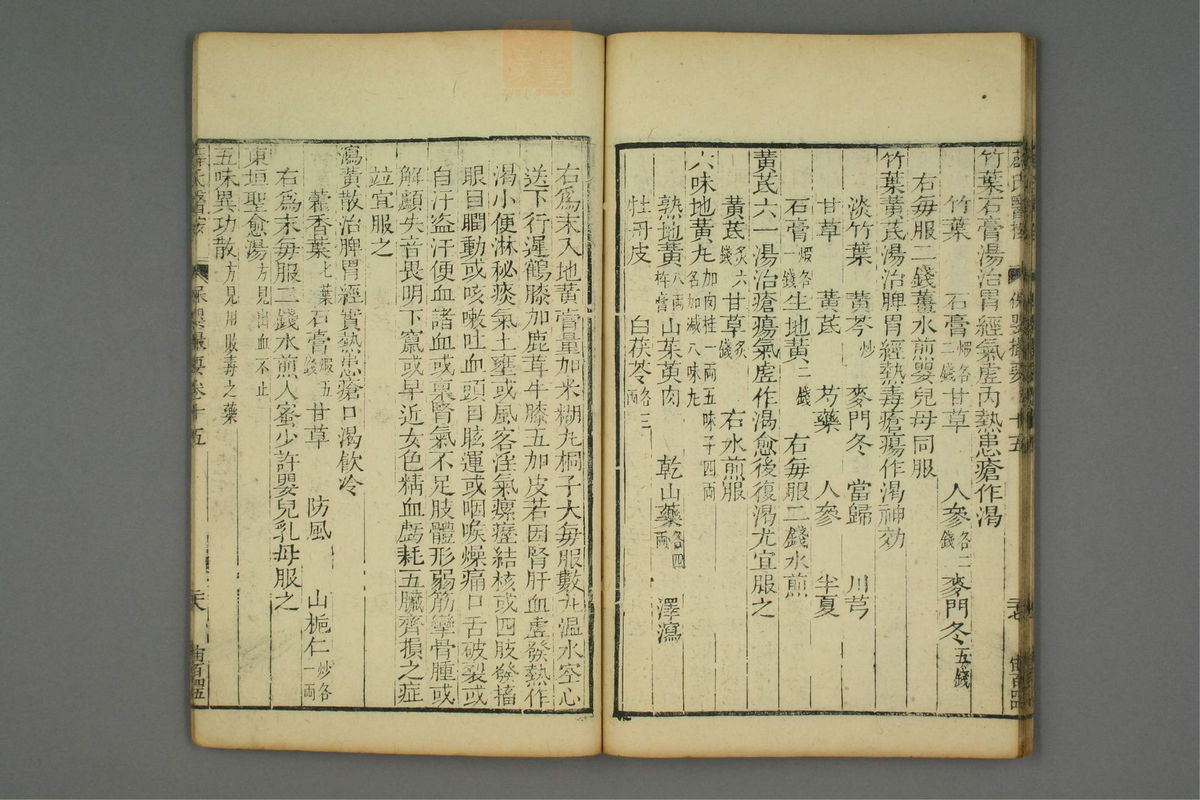 竹葉石膏湯治胃經氣虛內熱患瘡作渴
竹葉　石膏煅各二錢　甘草　人參各二錢　麥門冬五錢
右每服二錢薑水煎嬰兒母同服
竹葉黃芪湯治脾胃經熱毒瘡瘍作渴神効
淡竹葉　黃芩炒　麥門冬　當歸　川芎
甘草　黃芪　芍藥　人參　半夏
石膏煅各一錢　生地黃二錢　右每服二錢水煎
黃芪六一湯治瘡瘍氣虛作渴愈後復渴尤宜服之
黃芪炙六錢　甘草炙一錢　右水煎服
六味地黃丸加肉桂一兩五味子四兩名加減八味丸
熟地黃八兩杵膏　山茱萸肉　乾山藥各四兩　澤瀉
牡丹皮　白茯苓各三兩
右為末入地黃膏量加米糊丸桐子大每服數丸溫水空心
送下行遲鶴膝加鹿茸牛膝五加皮若因腎肝血虛發熱作
渴小便淋秘痰氣上壅或風客淫氣瘰癧結核或四肢發搐
眼目瞤動或咳嗽吐血頭目眩運或咽喉燥痛口舌破裂或
自汗盜汗便血諸血或稟腎氣不足肢體形弱筋攣骨腫或
解顱失音畏明下竄或早近女色精血虧耗五臟齊損之症
竝宜服之
瀉黃散治脾胃經實熱患瘡口渴飲冷
藿香葉七葉　石膏煅五錢　甘草　防風　山梔仁炒各一兩
右為末每服二錢水煎入蜜少許嬰兒乳母服之
東垣聖愈湯方見出血不止
五味異功散方見用敗毒之藥